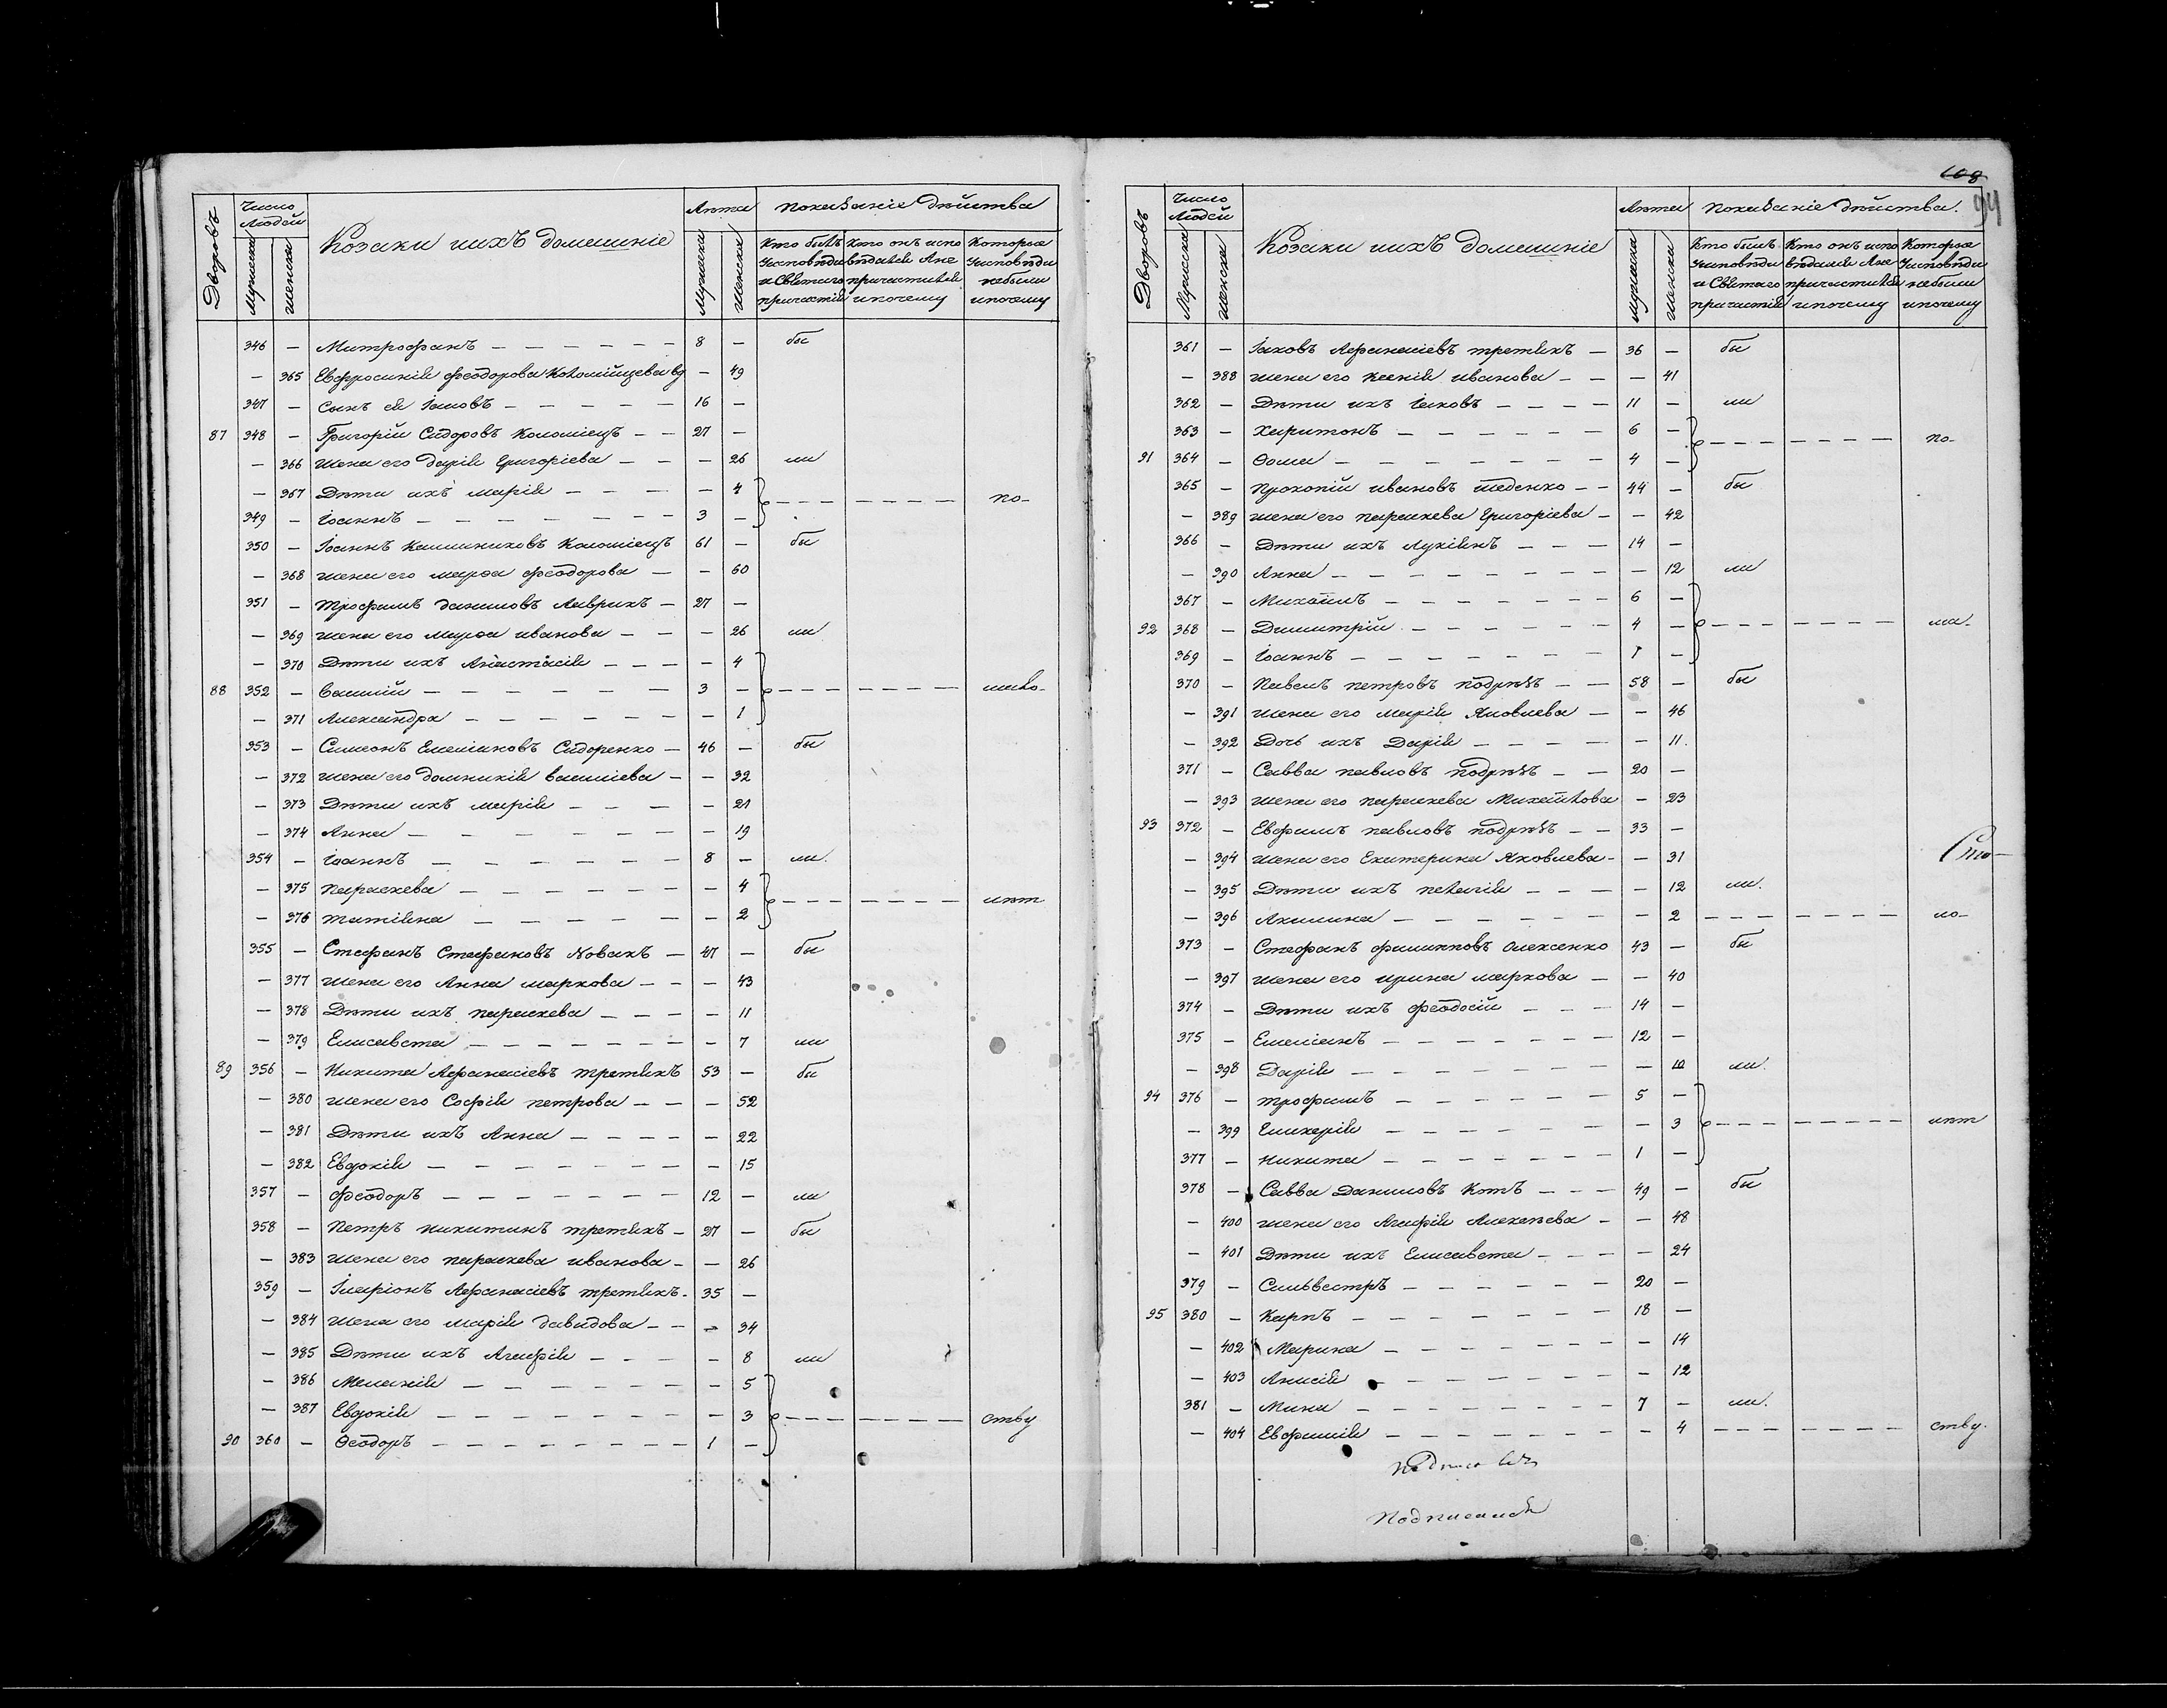 Дворовъ Число Людей Козаки иихъ домашніе Лѣта Показаніе дѣйства
Мужеска Женска Мужеска Женска Кто былъ Уисповѣди и Святаго причастія Кто онъ испо вѣдался Ане причастился ипочему Которыя Уисповѣди небыли ипочему
346 — Митрофанъ — 8 — бы
— 365 Евфросинія Феодорова Коломійцева вд — 49
347 — Сынъ ея Іаковъ — 16 —
87 348 — Григорій Сидоровъ Коломіецъ — 27 —
— 366 жена его Дарія Григоріева — — 26 ли
— 367 Дѣти ихъ Марія — — 4
349 — Іоаннъ — 3 — по-
350 — Іоаннъ Калинниковъ Коломіецъ 61 — бы
— 368 жена его Марѳа Феодорова — — 60
351 — Трофимъ Даниловъ Лаврикъ — 27 —
— 369 жена его Марѳа Иванова — — 26 ли
— 370 Дѣти ихъ Анастасія — — 4
88 352 — Василій — 3 — мало-
— 371 Александра — — 1
353 — Симеонъ Емеліановъ Сидоренко — 46 — бы
— 372 жена его Домникія Василіева — — 32
— 373 Дѣти ихъ Марія — — 21
— 374 Анна — — 19
354 — Іоаннъ — 8 — ли.
— 375 Параскева — — 4
— 376 Татіяна — — 2 лѣт
355 — Стефанъ Стефановъ Новакъ — 47 — бы
— 377 жена его Анна Маркова — — 43
— 378 Дѣти ихъ Параскева — — 11
— 379 Елисавета — — 7 ли
89 356 — Никита Афанасіевъ Третякъ 53 — бы
— 380 жена его Софія Петрова — — 52
— 381 Дѣти ихъ Анна — — 22
— 382 Евдокія — — 15
357 — Феодоръ — 12 — ли
358 — Петръ Никитинъ Третякъ — 27 — бы
— 383 жена его Параскева Иванова — — 26
359 — Іларіонъ Афанасіевъ Третякъ — 35 —
— 384 жена его Марія Давидова — — 34
— 385 Дѣти ихъ Агафія — — 8 ли
— 386 Меланія — — 5
— 387 Евдокія — — 3 ству
90 360 — Ѳеодоръ — 1 —
108
94
Дворовъ Число Людей Козаки иихъ домашніе Лѣта Показаніе дѣйства.
Мужеска Женска Мужеска Женска Кто былъ Уисповѣди и Святаго причастія Кто онъ испо вѣдался Ане причастился ипочему Которыя Уисповѣди небыли ипочему
361 — Іаковъ Афанасіевъ Третякъ — 36 — бы
— 388 жена его Ксенія Иванова — — 41
362 — Дѣти ихъ Іаковъ — 11 — ли
363 — Харитонъ — 6 — по-
91 364 — Ѳома — 4 —
365 — Прокопій Ивановъ Шеденко — 44 — бы
— 389 жена его Параскева Григоріева — — 42
366 — Дѣти ихъ Лукіянъ — 14 —
— 390 Анна — — 12 ли
367 — Михаилъ — 6 —
92 368 — Димитрій — 4 — ма-
369 — Іоаннъ — 1 —
370 — Павелъ Петровъ Подрѣзъ — 58 — бы
— 391 жена его Марія Яковлева — — 46
— 392 Дочь ихъ Дарія — — 11.
371 — Савва Павловъ Подрѣзъ — 20 —
— 393 жена его Параскева Михайлова — 23
93 372 — Евфимъ Павловъ Подрѣзъ — 33 —
— 394 жена его Екатерина Яковлева — — 31
— 395 Дѣти ихъ Пелагія — — 12 ли.
— 396 Акилина — — 2 ло-
373 — Стефанъ Филипповъ Олексенко 43 — бы
— 397 жена его Ирина Маркова — — 40
374 — Дѣти ихъ Феодосій — 14 —
375 — Емеліанъ — 12 —
— 398 Дарія — — 10 ли.
94 376 — Трофимъ — 5 —
— 399 Гликерія — — 3 лѣт
377 — Никита — 1 —
378 — Савва Даниловъ Котъ — 49 — бы
— 400 жена его Агафія Алексѣева — — 48
— 401 Дѣти ихъ Елисавета — — 24
379 — Сильвестръ — 20 —
95 380 — Карпъ — 18 —
— 402 Марина — — 14
— 403 Анисія — — 12
381 — Мина — 7 — ли.
— 404 Евфимія — — 4 ству.